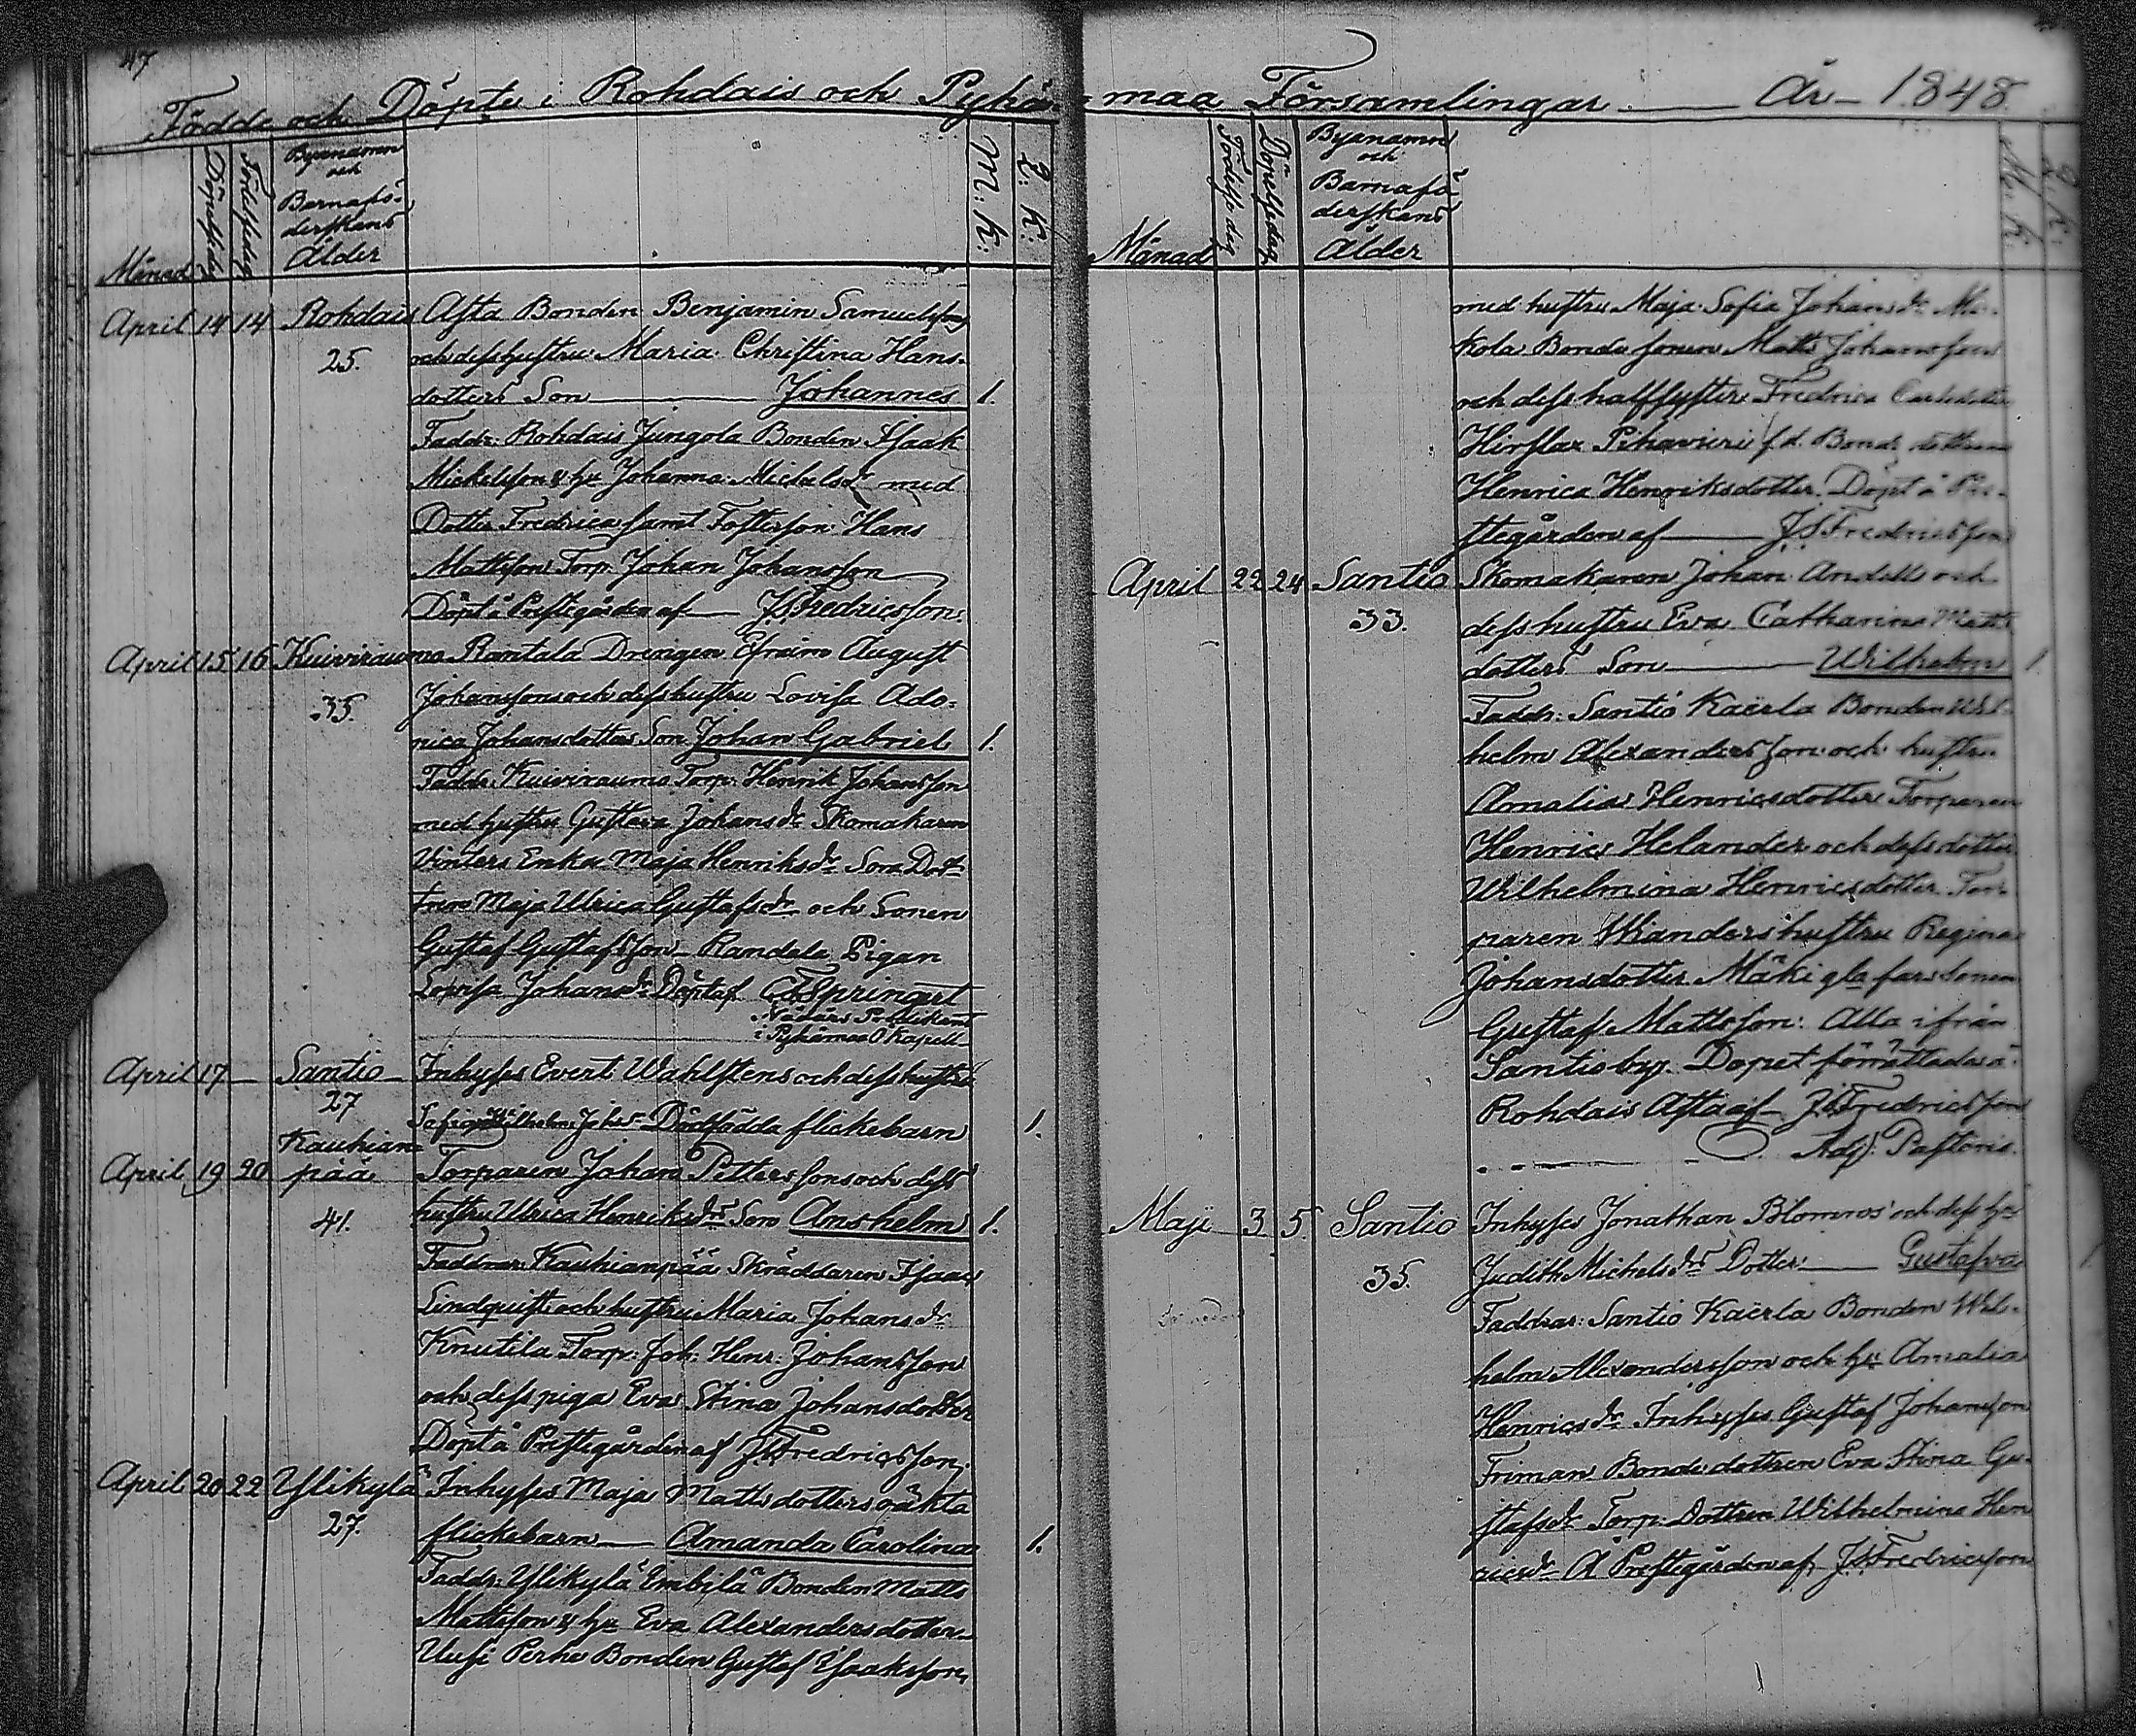 47
Födde och Döpte i Rohdais och Pyhä-maa Församlingar — År 1848.
Månad Födelsedag Byanamn och Barnafö-derskans Ålder M: K: Q: K:
April 14 14 Rohdais Asta Bonden Benjamin Samuelssons
25. och dess hustru Maria Christina Hans-
dotters Son — Johannes 1.
Faddr: Rohdais Jungola Bonden Isaak
Mickelsson & hu Johanna Michelsdr med
Dotter Fredrica samt Fosterson Hans
Mattsson Torp. Johan Johansson
Döpt å Prestegården af — JSFredricsson.
April 15 16 Kuivirauma Rantala Drengen Efraim August
35. Johanssons och dess hustru Lovisa Ado-
nica Johansdotters Son Johan Gabriel 1.
Faddr. Kuivirauma Torp. Henrik Johansson
med hustru Gustava Johansdr Skomakaren
Vinters Enka Maja Henriksdr Dot-
tren Maja Ulrica Gustafsdr och Sonen
Gustaf Gustafsson Randala Pigan
Lovisa Johansdr Döpt af Springert
i Pyhämaa Kapell
April 17 — Santio — Inhyses Evert Wahlstens och dess hustru
27 Sofia Wilhelm: Johsdr Dödfödda flickebarn 1.
Kauhian-
April 19 20 pää Torparen Johan Petterssons och dess
41. hustru Ulrica Henriksdrs Son Anshelm 1.
Faddrar: Kauhianpää Skräddaren Isaac
Lindquist och hustru Maria Johansdr
Knutila Torp: Joh: Henr: Johansson
och dess piga Eva Stina Johansdotter
Döpt å Prestegården af JSFredricsson.
April 20 22 Ylikylä Inhyses Maja Mattsdotters oäkta
27. flickebarn — Amanda Carolina 1.
Faddr: Ylikylä Embilä Bonden Matts
Mattsson & hu Eva Alexandersdotter
Uusi Perhe Bonden Gustaf Isaaksson,
Månad Födelsedag Döpelsedag Byanamn och Barnafö-derskans Ålder M: K: Q: K:
med hustru Maja Sofia Johansdr
kola Bonde sonen Matts Johansson
och dess halfsyster Fredrica Carlsdotter
f.d. Bonde dottren
Henrica Henriksdotter. Döpt å Pre-
stegården af — JSFredricsson
April 22 24 Santio Skomakaren Johan Andells och
33. dess hustru Eva Catharina Matts
dotters Son — Wilhelm 1
Faddr: Santio Kaërla Bonden Wil-
helm Alexandersson och hustru
Amalia Henricsdotter Torparen
Henric Helander och dess dotter
Wilhelmina Henricsdotter Tor-
paren Wianders hustru Regina
Johansdotter Mäki gla fars Sonen
Gustaf Mattsson: Alla ifrån
Santio by. Dopet förrättades å
Rohdais Asta af JSFredricsson
Adj: Pastoris.
Maji 3 5 Santio Inhyses Jonathan Blomros och dess hu
35. Judith Michelsdrs Dotter — Gustafva 1
Faddrar: Santio Kaërla Bonden Wil-
helm Alexandersson och hu Amalia
Henricsdr Inhyses Gustaf Johansson
Friman Bonde dottren Eva Stina Gu-
stafsdr Torp. Dottren Wilhelmina Hen
ricsdr Å Prestegården af JSFredricsson